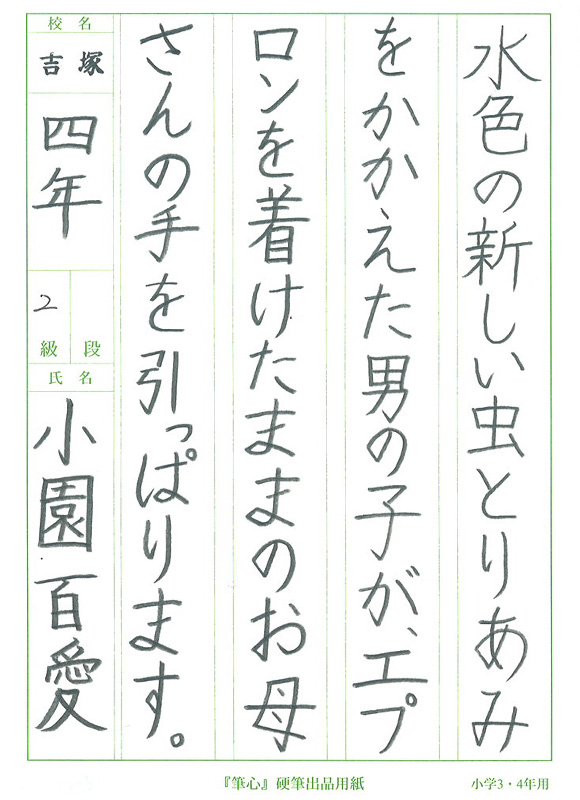 水色の新しい虫とりあみ
をかかえた男の子が、エプ
ロンを着けたままのお母
さんの手を引っぱります。
校名
吉塚
四年
2
級段
氏名
小園百愛
『筆心』硬筆出品用紙
小学3・4年用